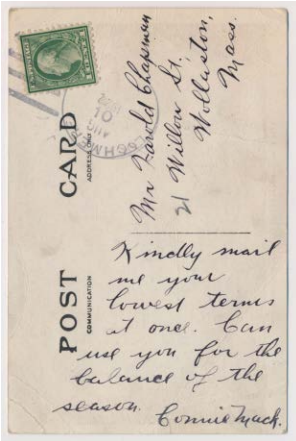 POST CARD
COMMUNICATION
ADDRESS ONLY
AUG
10
Mr Harold Chapman
21 Willow St.,
Wollaston,
Mass.
Kindly mail
me your
lowest terms
at once. Can
use you for the
balance of the
season.
Connie Mack.